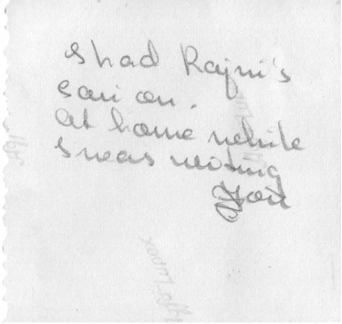 I had Rajni's
sari on.
At home while
I was writing
You